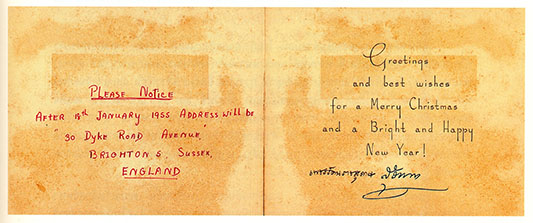 PLEASE NOTICE
AFTER 9th JANUARY 1955 ADDRESS will be
"30 DYKE ROAD AVENUE,"
BRIGHTON 5, SUSSEX,
ENGLAND
Greetings
and best wishes
for a Merry Christmas
and a Bright and Happy
New Year!